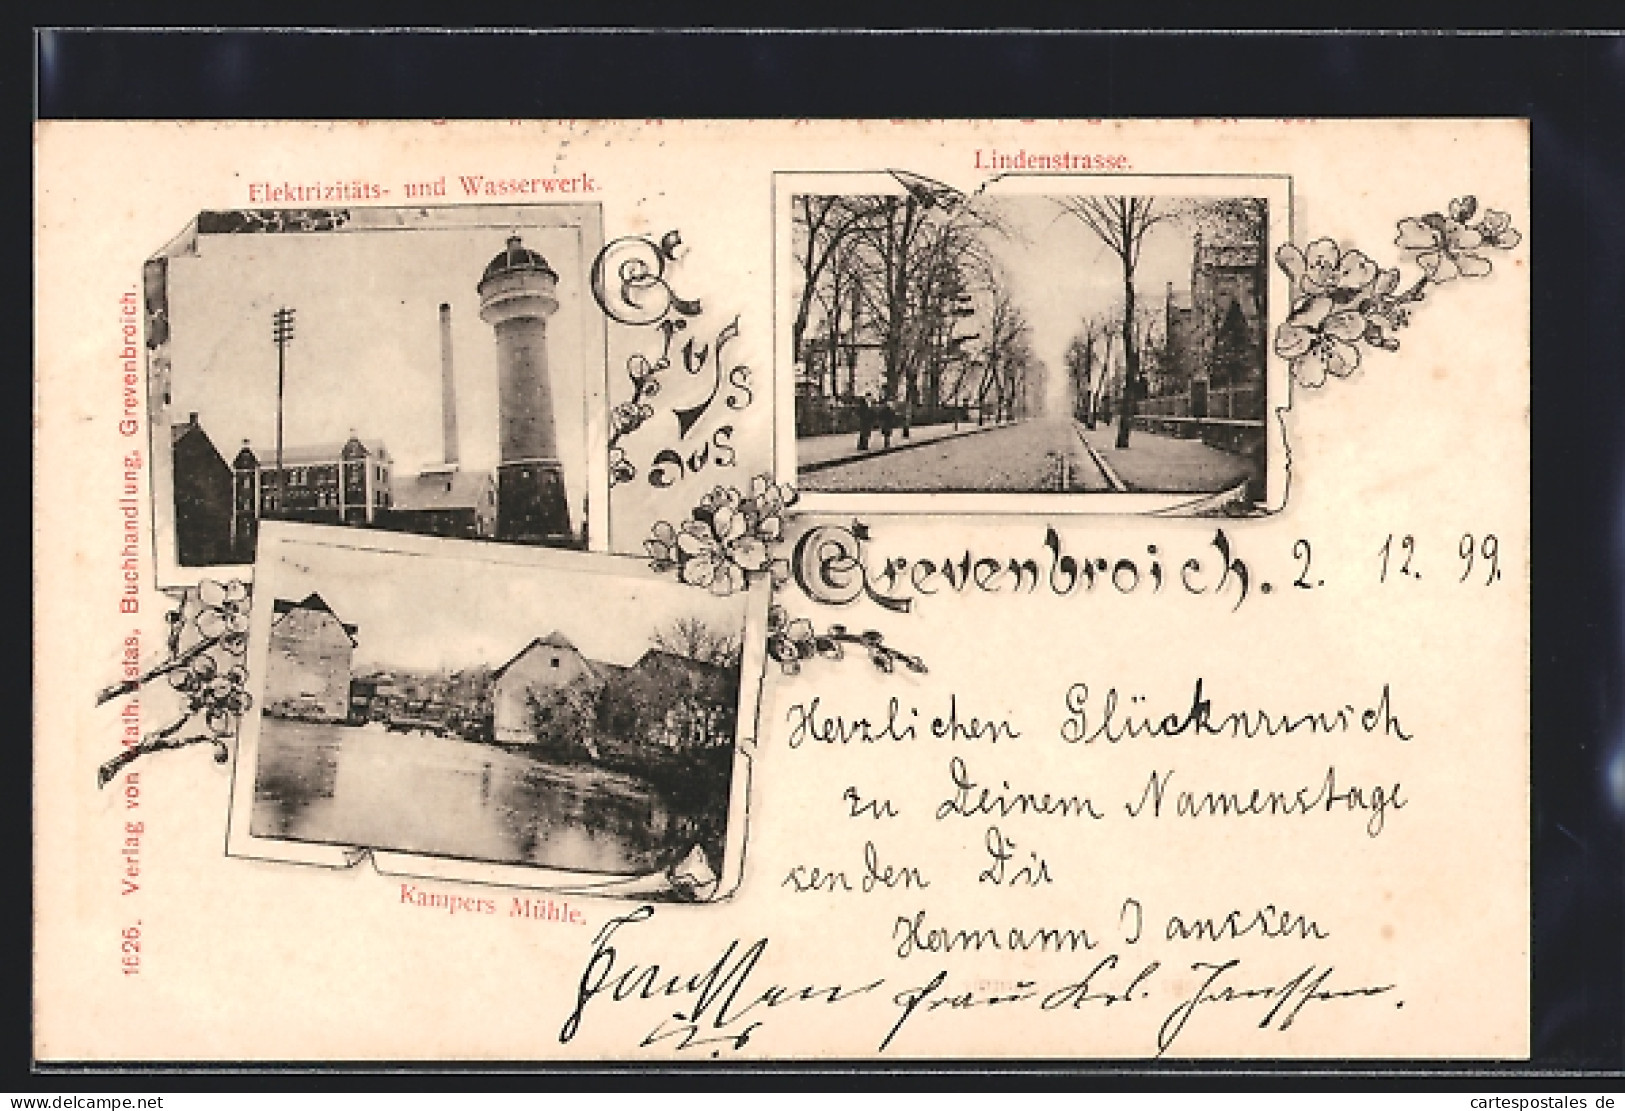 Elektrizitäts- und Wasserwerk.
Lindenstrasse.
Gruss
aus
Grevenbroich. 2. 12. 99.
Kampers Mühle.
1626. Verlag von Math. Buchhandlung, Grevenbroich.
Herzlichen Glückwunsch
zu Deinem Namenstage
senden Dir
Hermann Janssen
Frau Janssen.
delcampe.net
cartespostales de